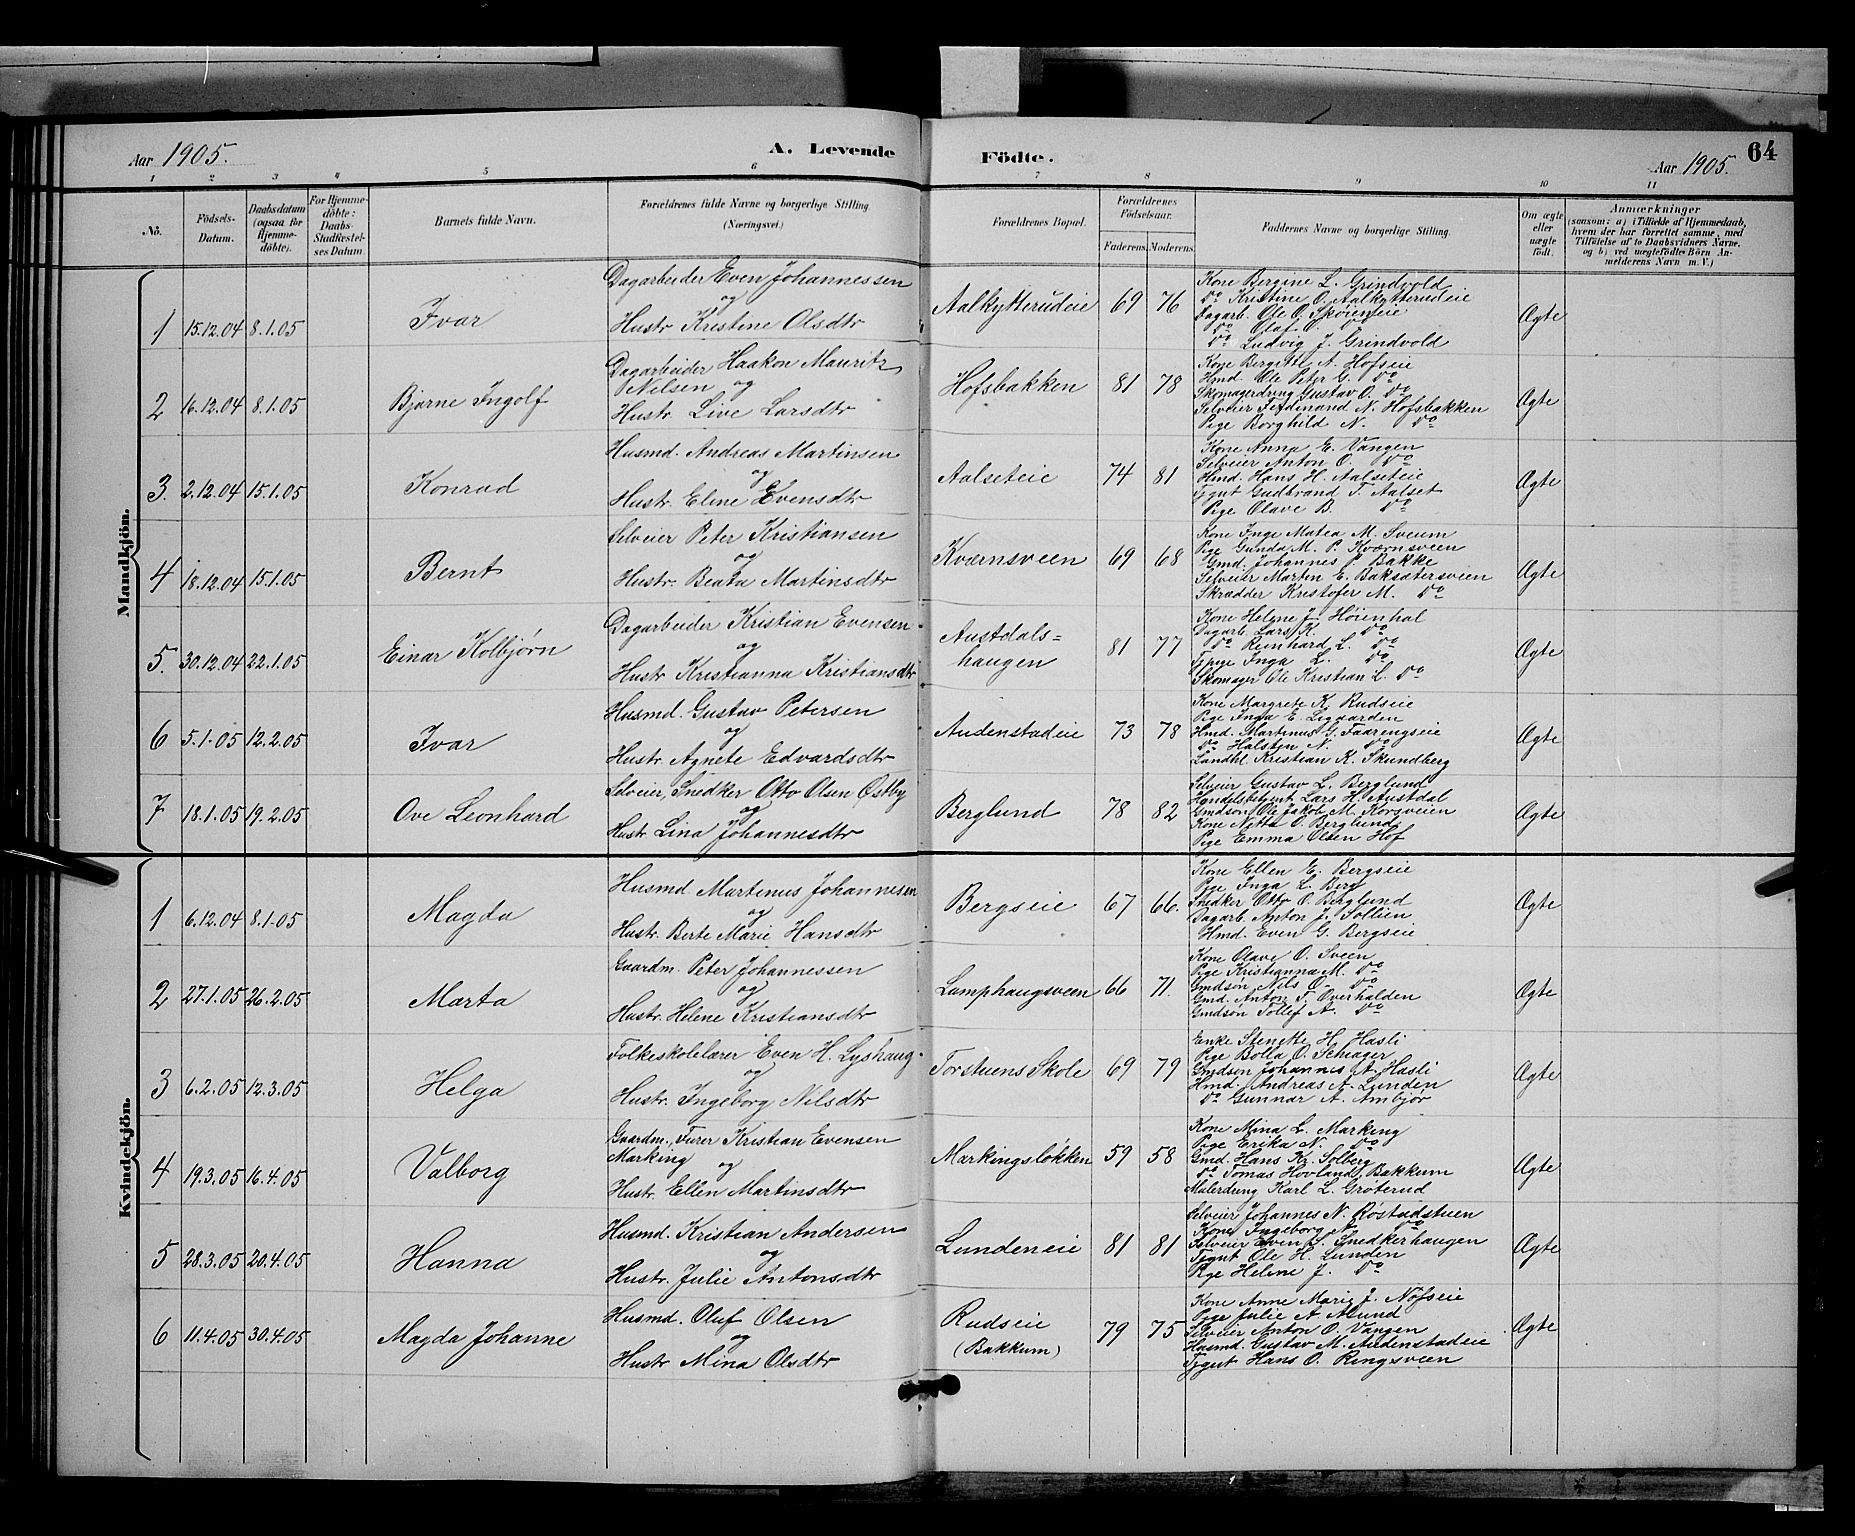 Aar 1905.
A. Levende
Födte.
Aar 1905.
64
1 2 3 4 5 6 7 8 9 10 11
No.
Födsels-Datum.
Daabsdatum (ogsaa for Hjemme-döbte).
For Hjemme-döbte: Daabs-Stadfæstel-ses Datum
Barnets fulde Navn.
Forældrenes fulde Navne og borgerlige Stilling. (Næringsvei.)
Forældrenes Bopæl.
Forældrenes Födselsaar.
Faderens.
Moderens.
Faddernes Navne og borgerlige Stilling.
Om ægte eller uægte födt.
Anmærkninger
(saasom: a) i Tilfælde af Hjemmedaab, hvem der har forrettet samme, med Tilføielse af to Daabsvidners Navne. og b) ved uægtefödte Börn An-melderens Navn m. V.)
Mandkjön.
1 15.12.04 8.1.05 Ivar
Dagarbeider Even Johannessen
og
Hustr Kristine Olsdtr
Aalkytterudeie 69 76
Kone Bergine L. Grindvold
Do Kristine O. Aalkytterudeie
Dagarb. Ole O. Skøieneie
Do Olaf O. Do
Do Ludvig J. Grindvold
Ægte
2 16.12.04 8.1.05 Bjarne Ingolf
Dagarbeider Haakon Mauritz
Nilsen og
Hustr Live Larsdtr
Hofsbakken 81 78
Kone Bergitte A. Hofseie
Hmd. Ole Peter G. Do
Skomagerdreng Gustav O. Do
Selveier Ferdinand N. Hofsbakken
Pige Borghild N. Do
Ægte
3. 2.12.04 15.1.05 Konrad
Husmd. Andreas Martinsen
og
Hustr. Eline Evensdtr
Aalseteie 74 81
Kone Anna E. Vangen
Selveier Anton O. Do
Hmd. Hans H. Aalseteie
Tjgut Gudbrand T. Aalset
Pige Olave B. Do
Ægte
4 18.12.04 15.1.05 Bernt
Selveier Peter Kristiansen
og
Hustr. Beata Martinsdtr
Kværnsveen 69 68
Kone Inge Matea M. Sveum
Pige Gunda M. P. Kværnsveen
Gmd. Johannes P. Bakke
Selveier Martin E. Baksætersveen
Skrædder Kristofer M. Do
Ægte
5. 30.12.04 22.1.05 Einar Kolbjørn
Dagarbeider Kristian Evensen
og
Hustr Kristianna Kristiansdtr
Austdals=
haugen 81 77
Kone Helene J. Høienhal
Dagarb. Lars K. Do
Do Reinhard L. Do
Tjpige Inga L. Do
Skomager Ole Kristian L. Do
Ægte
6 5.1.05 12.2.05 Ivar
Husmd. Gustav Petersen
og
Hustr. Agnete Edvardsdtr
Audenstadeie 73 78
Kone Margrete K. Rudseie
Pige Inga E. Liggarden
Hmd. Martinus G. Faarengseie
Do Halsten N. Do
Landhl. Kristian K. Skundberg
Ægte
7 18.1.05 19.2.05 Ove Leonhard
Selveier, Snedker Otto Olsen Østby
og
Hustr. Lina Johannesdtr
Berglund 78 82
Selveier Gustav L. Berglund
Handelsbetjent Lars H. Austdal
Gmdsøn Ole Jakob M. Korsveien
Kone Nitta O. Berglund
Pige Emma Olsen Hof
Ægte
Kvindekjön.
1 6.12.04 8.1.05 Magda
Husmd Martinus Johannesen
og
Hustr. Berte Marie Hansdtr
Bergseie 67 66.
Kone Ellen E. Bergseie
Pige Inga L. Berg
Snedker Otto O. Berglund
Dagarb. Anton J. Sollien
Hmd. Even G. Bergseie
Ægte
2 27.1.05 26.2.05 Marta
Gaardm. Peter Johannessen
og
Hustr. Helene Kristiansdtr
Lamphaugsveen 66 71.
Kone Olave O. Sveen
Pige Kristianna M. Do
Gmdsøn Nils O. Do
Gmd. Anton T. Overhalden
Gmdsøn Tollef A. Do
Ægte
3 6.2.05 12.3.05 Helga
Folkeskolelærer Even H. Lyshaug
og
Hustr. Ingeborg Nilsdtr
Torstuens Skole 69 79
Enke Stenette H. Hasli
Pige Bolla O. Schiager
Gmdsøn Johannes A. Hasli
Hmd. Andreas A. Lunden
Do Gunnar A. Ambjør
Ægte
4 19.3.05 16.4.05 Valborg
Gaardm., Furer Kristian Evensen
Marking og
Hustr. Ellen Martinsdtr
Markingsløkken 59 58
Kone Mina L. Marking
Pige Erika N. Do
Gmd. Hans Kr. Solberg
Do Tomas Hovland, Bakkum
Malerdreng Karl L. Grøterud
Ægte
5 28.3.05 20.4.05 Hanna
Husmd. Kristian Andersen
og
Hustr. Julie Antonsdtr
Lundeneie 81 81
Selveier Johannes N. Røstadstuen
Kone Ingeborg N. Do
Selveier Even J. Snedkerhaugen
Tjgut Ole H. Lunden
Pige Helene J. Do
Ægte
6 11.4.05 30.4.05 Magda Johanne
Husmd. Oluf Olsen
og
Hustr Mina Olsdtr
Rudseie
(Bakkum) 79 75
Kone Anne Marie J. Nøfseie
Pige Julie A. Asund
Selveier Anton O. Vangen
Husmd. Gustav M. Audenstadeie
Tjgut Hans O. Ringsveen
Ægte